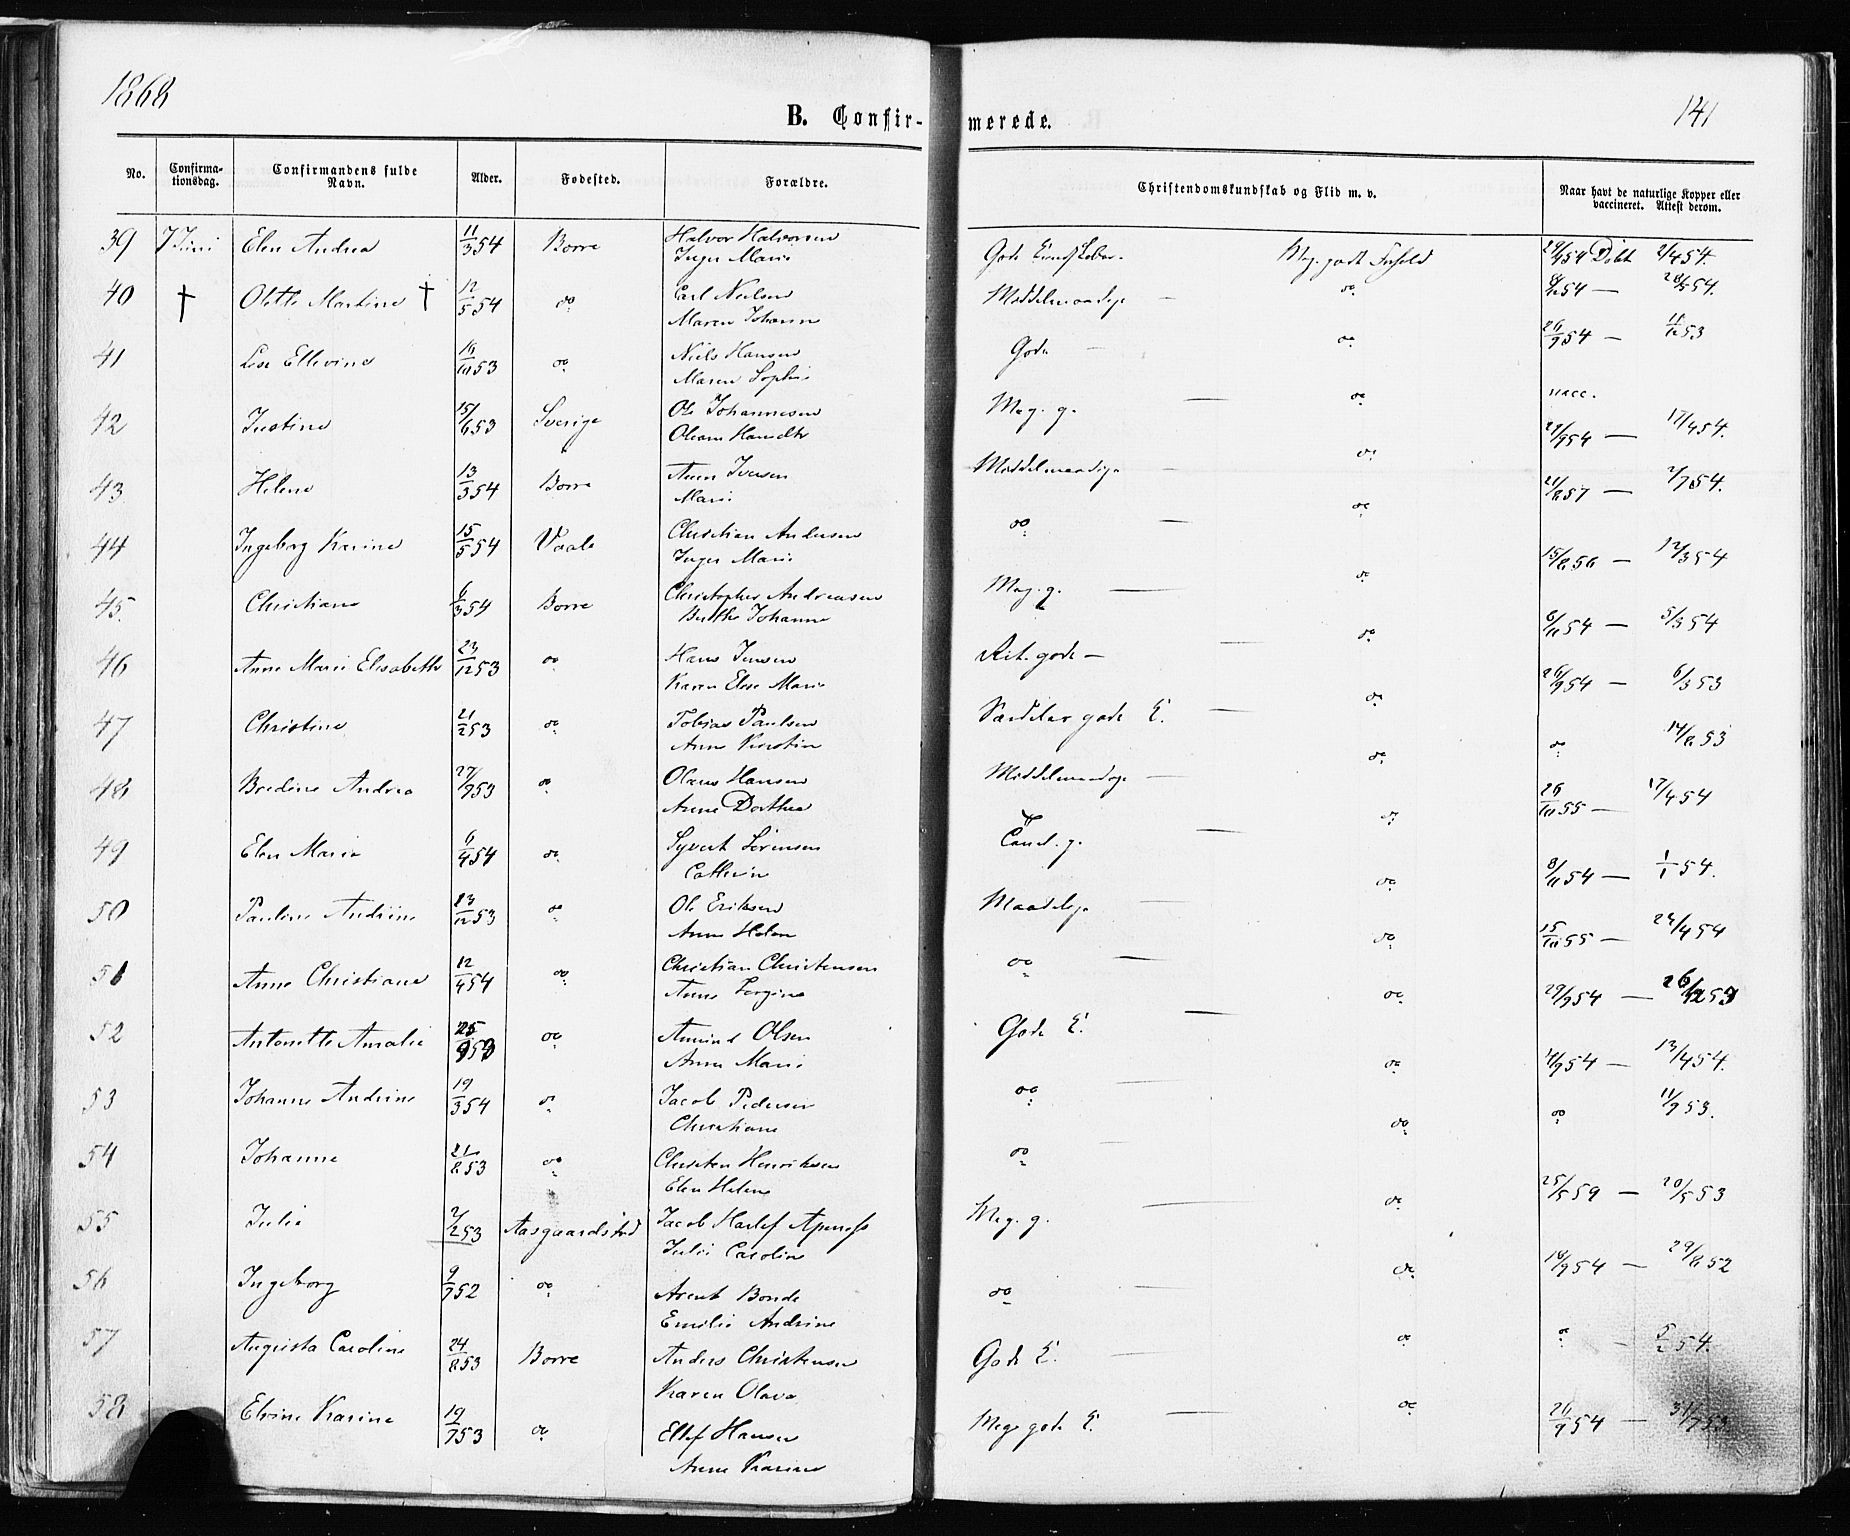 1868
141
B. Confir- merede.
No. Confirma- tionsdag. Confirmandens fulde Navn. Alder. Fødested. Forældre. Christendomskundskab og Flid m. v. Naar havt de naturlige Kopper eller vaccineret. Attest derom.
39 7 Juni Elen Andrea 11/3 54 Borre Halvor Halvorsen
Inger Marie Gode Kundskaber. Meg. godt Forhold Døbt 2/4 54.
40 † Olette Martine † 12/5 54 do Carl Nielsen
Maren Johanne Middelmaadige — do
41 Lise Ellevine 16/10 53 do Niels Hansen
Maren Sophie Gode — do 26/9 54 —
42 Justine 15/6 53 Sverige Ole Johannesen
Meg. g. — do vacc.
43 Helene 13/3 54 Borre Iversen
Marie Middelmaadige — do 27/9 54 — 17/4 54.
44 Ingeborg Karine 15/5 54 Vaale Christian Andersen
Inger Marie do — do 2/7 54.
45. Christiane 6/3 54 Borre Christopher Andreasen
Berthe Johanne Meg. g. — do 15/8 56 — 12/3 54
46 Anne Marie Elisabeth 23/12 53 do Hans Jensen
Karen Elise Marie Ret gode — do 6/11 54 — 5/3 54
47 Christine 21/2 53 do Tobias Paulsen
Anne Kirstin Særdeles gode K. — do 26/9 54 — 6/3 53
48 Bredine Andrea 27/9 53 do Olaus Hansen
Anne Dorthea Middelmaadige — do do 14/8 53
49 Elen Marie 6/4 54 do Syvert Sørensen
Cathrin g. — do 26/10 55 — 17/4 54
50 Pauline Andrine 23/12 53 do Ole Eriksen
Anne Helen Maadelige — do 8/11 54 — 1/1 54.
51 Anne Christiane 12/4 54 do Christian Christensen
Anne do — do 15/10 55 — 24/4 54
52 Antonette Amalie do Amund Olsen
Anne Marie Gode K. — do 29/9 54 —
53 Johanne Andrine 19/3 54 do Jacob Pedersen
Christiane do — do 13/4 54.
54 Johanne 21/8 53 do Christen Henriksen
Elen Helene do — do do 11/9 53.
55 Julie 2/2 53 Aasgaardstrand Jacob
Julie Caroline Meg. g. — do 25/5 59 — 20/5 53
56 Ingeborg 9/7 52 do Arent Bonde
Emilie Andrine do — do 18/9 54 — 29/8 52
57 Augusta Caroline 24/8 53 Borre Anders Christensen
Karen Olava Gode K. — do do — 5/2 54.
58 Elvine Karine 19/7 53 do Ellef Hansen
Anne Karine Meg. gode K. — do 26/9 54 — 31/7 53